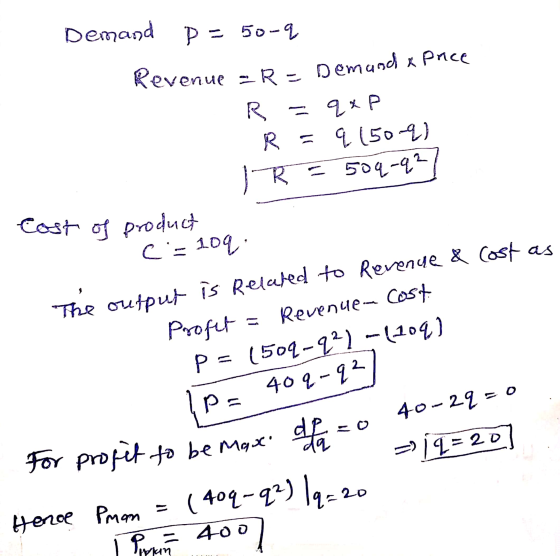 Demand p = 50-q
Revenue = R = Demand x Price
R = q x P
R = q (50-q)
R = 50q-q²
Cost of product
C = 10q.
The output is Related to Revenue & Cost as
Profit = Revenue - Cost
P = (50q-q²) - (10q)
P = 40q-q²
For profit to be Max. dP/dq = 0 40-2q = 0
⇒ q = 20
Hence Pmam = (40q-q²) |q=20
P = 400